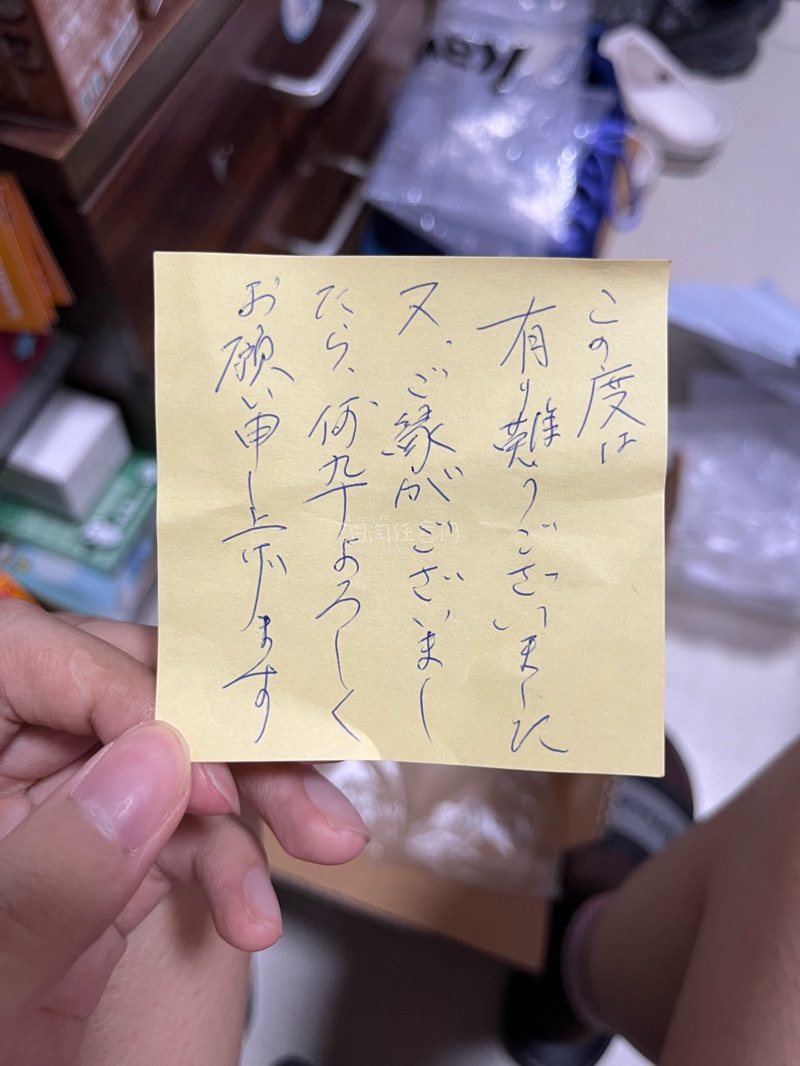 この度は
有り難うございました
又、ご縁がございまし
たら、何卆よろしく
お願い申し上げます
Kaw